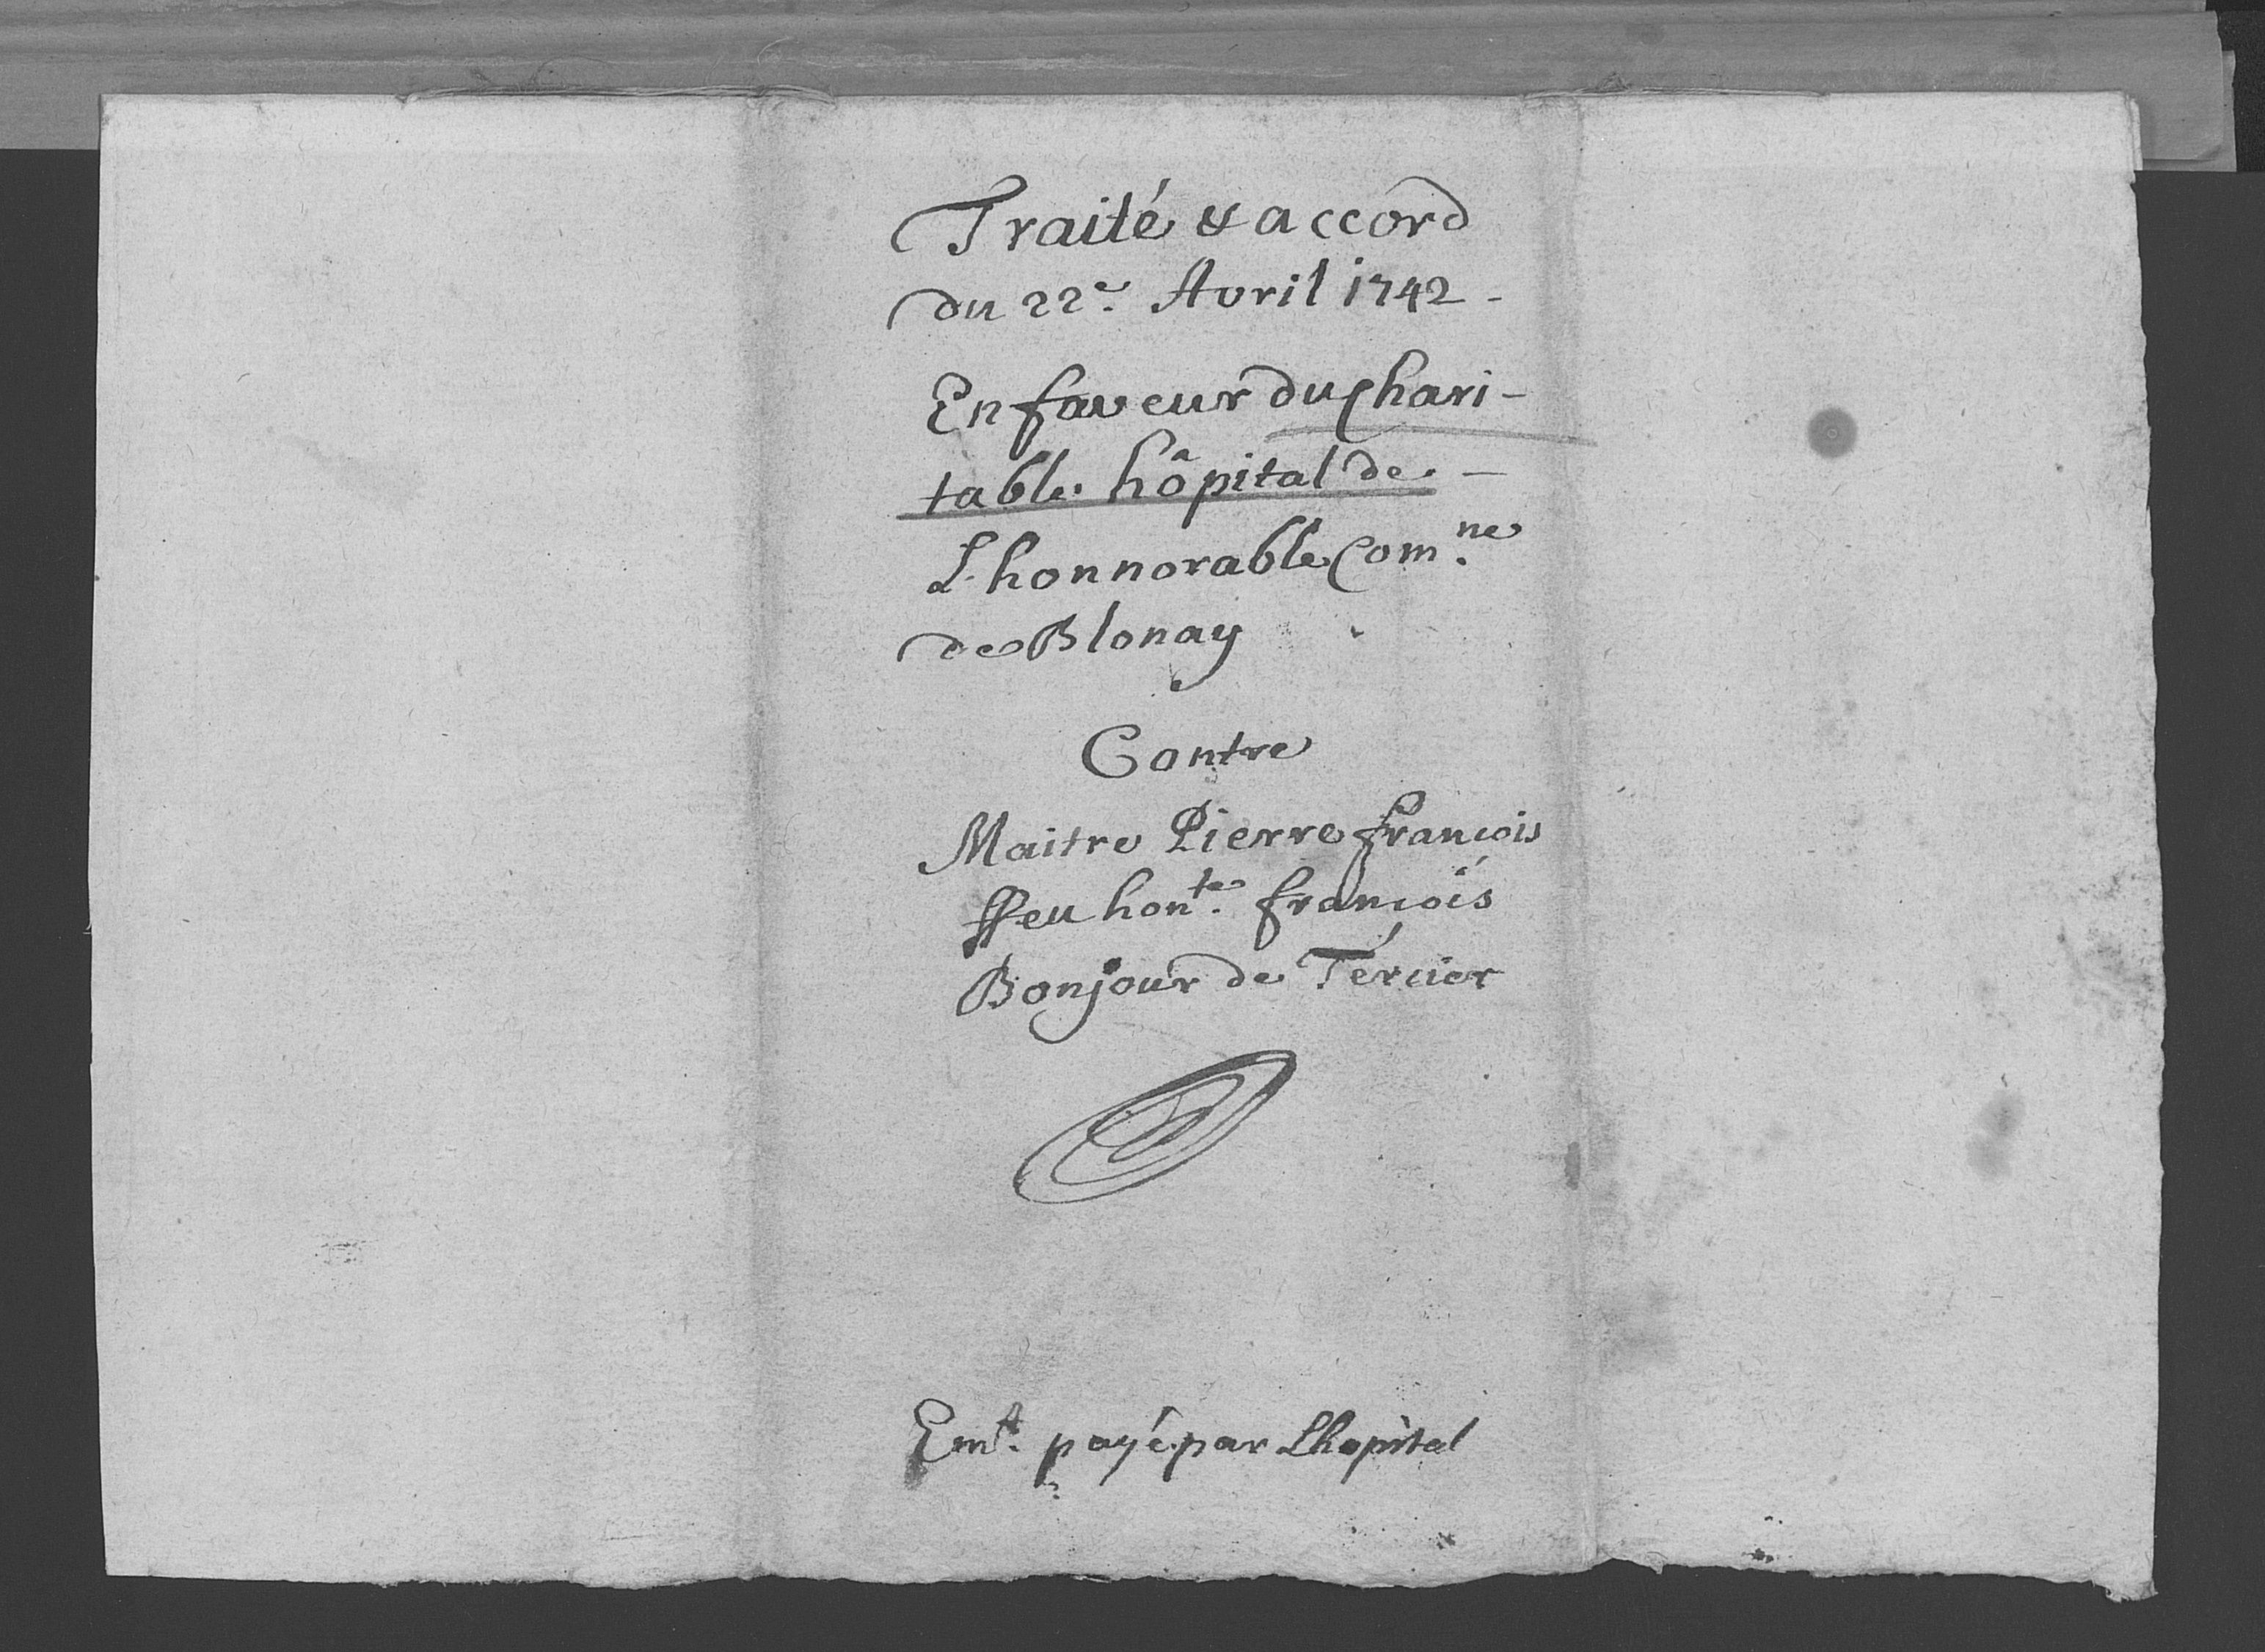 Traité & accord
du 22e. Avril 1742 -
En faveur du Chari-
table hôpital de -
L'honnorable Com.ne
de Blonay
Contre
Maitre Pierre francois
ffeu hon.te francois
Bonjour de Tercier
Em.t payé par Lhopital